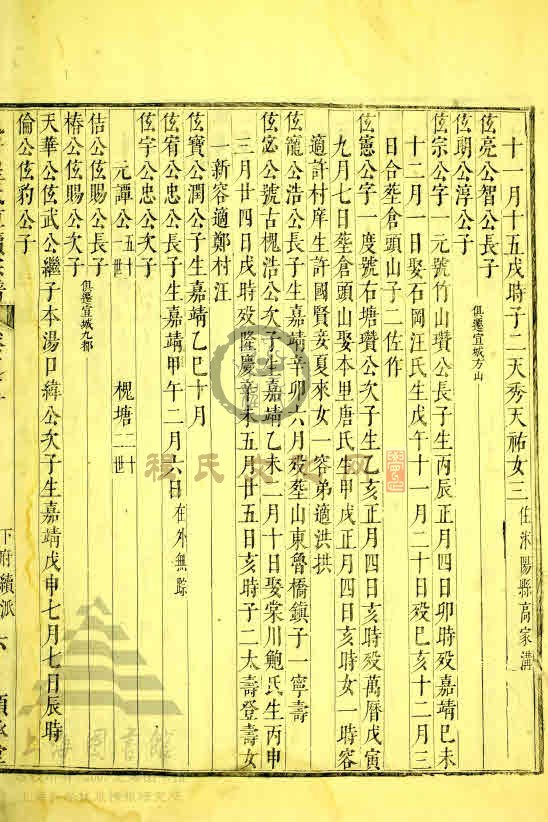 十一月十五戌時子二天秀天祐女三住沭陽縣高家溝
伭亮公智公長子
伭朗公淳公子俱遷宣城方山
伭宗公字一元號竹山瓚公長子生丙辰正月四日卯時歿嘉靖己未
十二月一日娶石岡汪氏生戊午十一月二十日歿己亥十二月三
日合塟倉頭山子二佐作
伭憲公字一度號右塘瓚公次子生乙亥正月四日亥時歿萬曆戊寅
九月七日塟倉頭山娶本里唐氏生甲戌正月四日亥時女一時容
適許村庠生許國賢妾夏來女一容弟適洪拱
伭寵公浩公長子生嘉靖辛卯六月歿塟山東魯橋鎮子一寧壽
伭宓公號古槐浩公次子生嘉靖乙未二月十日娶棠川鮑氏生丙申
三月廿四日戌時歿隆慶辛未五月廿五日亥時子二太壽登壽女
一新容適鄭村汪
伭寶公潤公子生嘉靖乙巳十月
伭宥公忠公長子生嘉靖甲午二月六日在外無踪
伭宇公忠公次子
元譚公五十世 槐塘二十世
佶公伭賜公長子俱遷宣城九都
椿公伭賜公次子
天華公伭武公繼子本湯口緯公次子生嘉靖戊申七月七日辰時
倫公伭豹公子
下府續派 六
上海圖書館